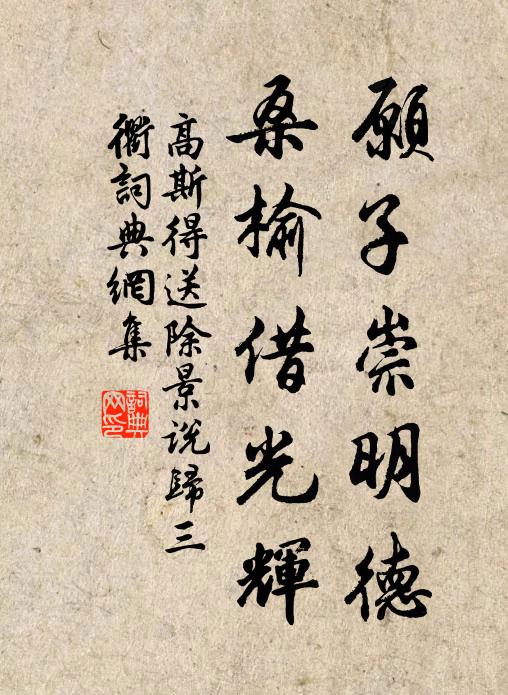 願子崇明德
桑榆借光輝
高斯得送除景说歸三
衢詞典網集
詞典网印